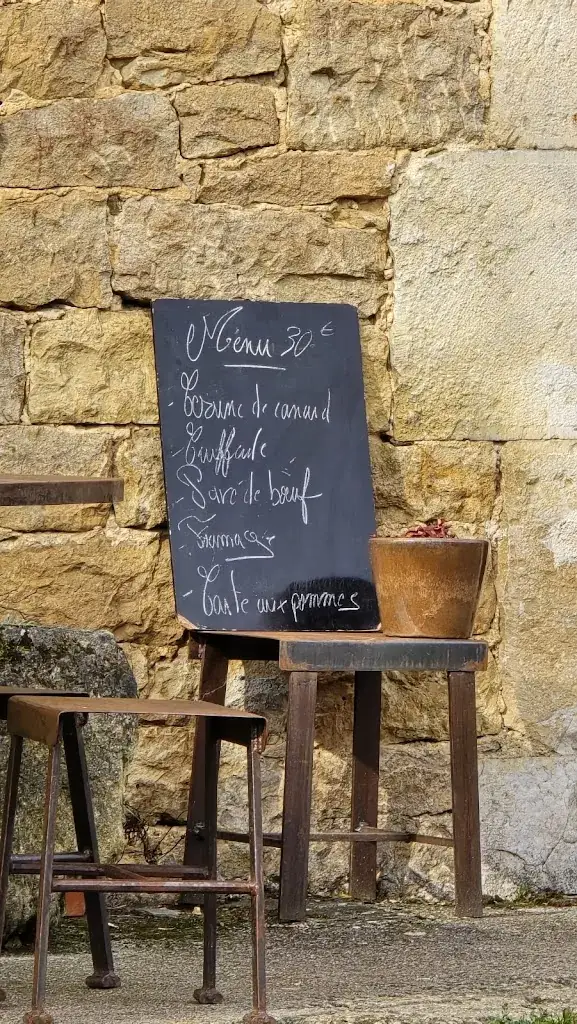 Menu 30 €
- Terrine de canard
- Truffade
- Pavé de bœuf
- Fromages
- Tarte aux pommes